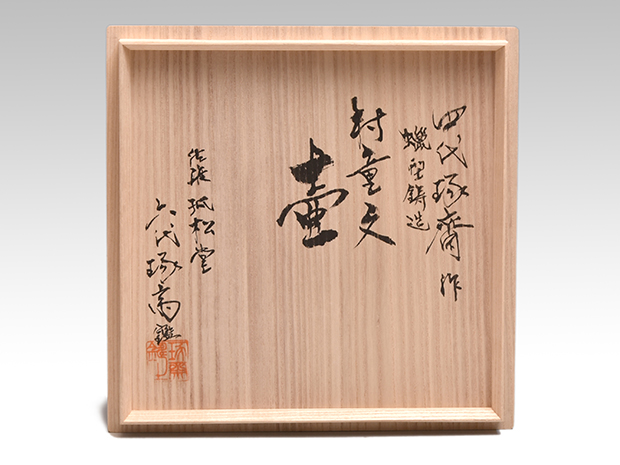 四代琢齋作
蠟型鋳造
村童文
壷
佐渡 孤松堂
六代琢斎鑑